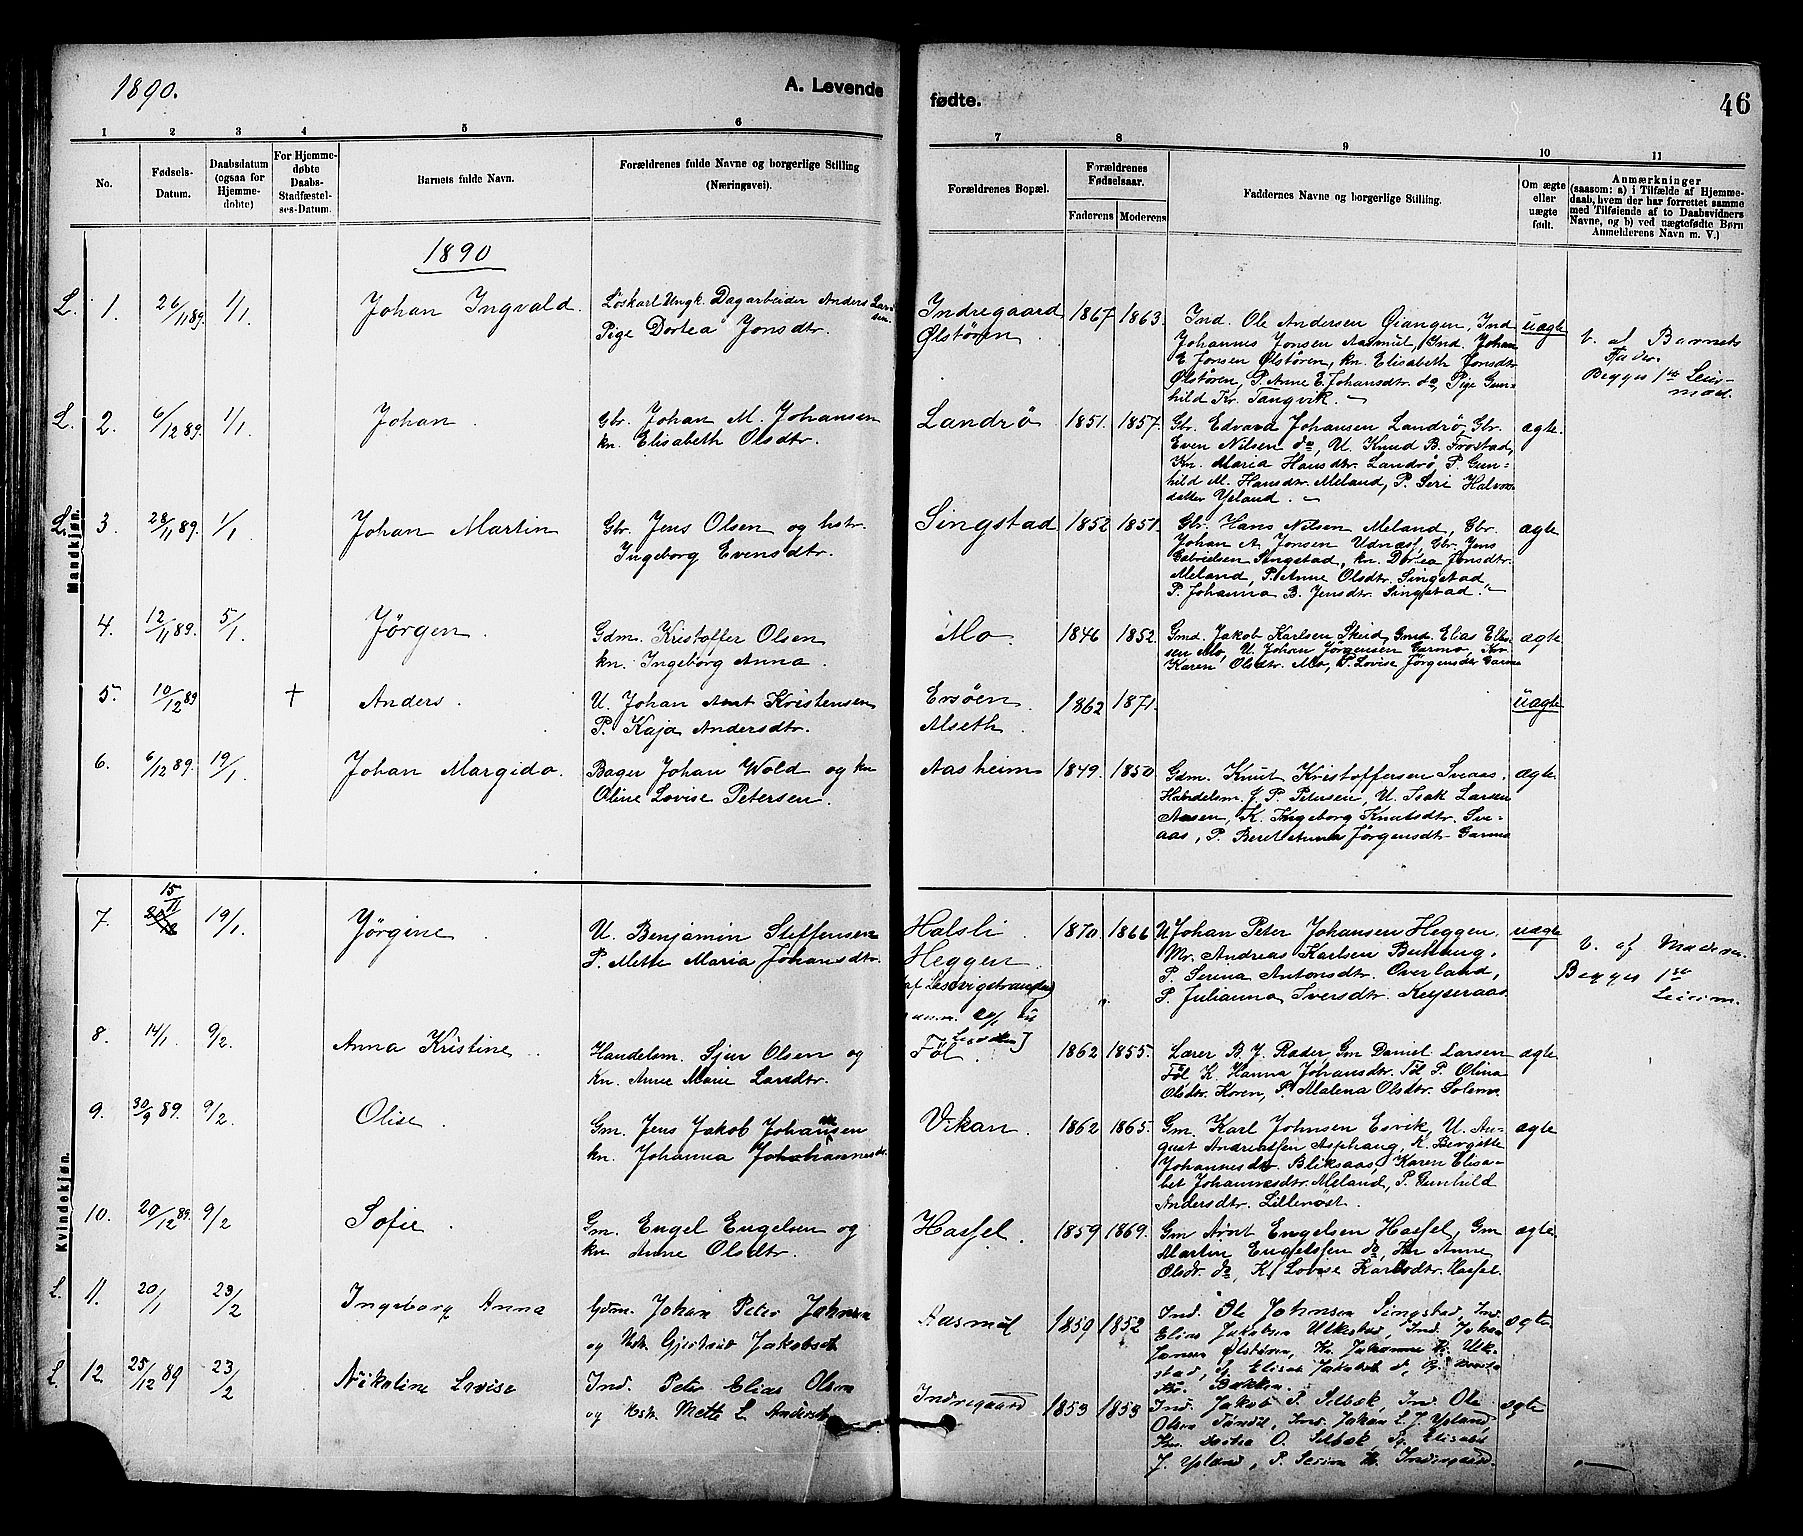 1890.
A. Levende
fødte.
46
1 2 3 4 5 6 7 8 9 10 11
No.
Fødsels-
Datum.
Daabsdatum
(ogsaa for
Hjemme-
døbte)
For Hjemme-
døbte
Daabs-
Stadfæstel-
ses-Datum.
Barnets fulde Navn.
Forældrenes fulde Navne og borgerlige Stilling
(Næringsvei).
Forældrenes Bopæl.
Forældrenes
Fødselsaar.
Faderens Moderens
Faddernes Navne og borgerlige Stilling.
Om ægte
eller
uægte
født.
Anmærkninger
(saasom: a) i Tilfælde af Hjemme-
daab, hvem der har forrettet samme
med Tilføiende af to Daabsvidners
Navne, og b) ved uægtefødte Børn
Anmelderens Navn m. V.)
Mandkjøn.
1890
L. 1. 26/11 89. 1/1 Johan Ingvald.
Løskarl Ungk. Dagarbeider Anders Larssen.
Pige Dortea Jonsdtr.
Indregaard
Ølstøren
1867 1863.
Ind. Ole Andersen Øiangen, Ind
Johannes Jonsen Aasmul, Ind. Johan
E Jonsen Ølstøren, kn. Elisabeth Jonsdtr
Ølstøren, P. Anne E. Johansdtr. do, Pige Gun-
hild Kr. Tangvik.
uægte
V. af Barnets
Fader.
Begges 1ste Leier-
maal.
L. 2. 6/12 89. 1/1 Johan.
Gbr. Johan M. Johansen
kn. Elisabeth Olsdtr.
Landrø
1851. 1857.
Gbr. Edvard Johansen Landrø, Gbr.
Even Nilsen do, U. Knud B. Frostad,
Kn. Maria Hansdtr. Landrø, P. Gun-
hild M. Hansdtr. Meland, P. Seri Halvors-
datter Ysland.
ægte.
L. 3. 28/11 89. 1/1 Johan Martin
Gbr. Jens Olsen og hstr.
Ingeborg Evensdtr.
Singstad
1852 1851.
Gbr. Hans Nilsen Meland, Gbr.
Johan A. Jonsen Udnæs, Gbr. Jens
Gabrielsen Singstad, kn. Dortea Jonsdtr.
Meland, P. Anne Olsdtr. Singstad,
P. Johanna B. Jensdtr. Singstad.
ægte
4. 12/11 89. 5/1 Jörgen.
Gdm. Kristoffer Olsen
kn. Ingeborg Anna.
Mo
1846 1852.
Gmd. Jakob Karlsen Skeid, Gmd. Elias Elias-
sen Mo, U. Johan Jørgensen Garmo, Kv.
Karen Olsdtr. Mo, P. Lovise Jørgensdtr Garmo
ægte
5. 10/12 89 + Anders.
U. Johan Arnt Kristensen
P. Kaja Andersdtr.
Ersøen
Alseth.
1862 1871.
uægte
6. 6/12 89. 19/1 Johan Margido.
Bager Johan Wold og kn
Oline Lovise Petersen.
Aasheim
1849. 1850
Gdm. Knut Kristoffersen Sveaas.
Handelsm. J. P. Petersen, U. Isak Larsen
Aasen, K. Ingeborg Knutsdtr. Sve-
aas, P. Beret Anna Jørgensdtr Garmo
ægte.
Kvindekjøn.
7. 15/11 19/1 Jörgine.
U. Benjamin Steffensen
P. Mette Maria Johansdtr.
Halsli.
Heggen
1870. 1866
U Johan Peter Johansen Heggen.
Mr. Andreas Karlsen Buhaug.
P. Serina Antonsdtr. Overland,
P. Julianna Iversdtr. Keiseraas.
uægte
V. af Moderen.
Begges 1ste
Leierm.
8. 14/1 9/2. Anna Kristine.
Handelsm. Sjur Olsen og
Kn. Anne Marie Larsdtr.
Føl.
1862 1855.
Lærer B. J. Rader, Gm Daniel Larsen
Føl K. Hanna Johansdtr. Føl P. Olina
Olsdtr. Koren, P. Malena Olsdtr. Solemo.
ægte
9. 30/9 89. 9/2 Olise.
Gm. Jens Jakob Johansen
kn. Johanna Johannesd.
Vikan.
1862 1865.
Gm. Karl Johnsen Esvik, U. Au-
gust Andreassen Asphaug, K. Bergitte
Johannesdtr Bliksaas, Karen Elisa-
bet Johannesdtr. Meland, P. Gunhild
Andersdtr. Lillenøst.
ægte
10. 20/12 89. 9/2 Sofie.
Gm. Engel Engelsen og
kn. Anne Olsdtr.
Hassel.
1859 1869.
Gm Arnt Engelsen Hassel, Gm
Martin Engelssen do, Kn Anne
Olsdr. do, K. Lovise Karlsdtr. Hassel.
ægte
L. 11. 20/1 23/2 Ingeborg Anna
Gdm. Johan Peter Johnsen
og Hstr. Gjertrud Jakobsdt
Aasmul
1859 1852
Ind. Ole Johnsen Singstad, Ind
Elias Jakobsen Ulkestad, Ind. Johan
Jonsen Ølstøren, Kn. Johanne K. Ulk-
stad, Pg Elisa Jakobsdt d,
Bakken.
ægte
L. 12. 25/12 89 23/2 Nikoline Lovise
Ind. Peter Elias Olsen
og Hstr. Mette L. Andersdt
Indregaard
1853 1853
Ind. Jakob P. Selbæk, Ind Ole
Olsen Tandil, Ind. Johan L. J. Ysland,
Kn. Dortea O. Selbæk, Pg. Elisabet
J. Ysland, P. Serina K. Indregaard.
ægte